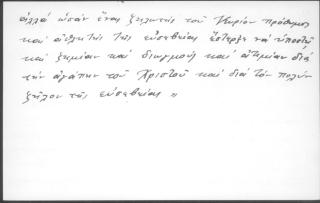 ἀλλά ὡσάν ἕνας ζηλωτής τοῦ Κυρίου πρόθυμος
καί ἀθλητής τῆς εὐσεβείας ἔστερξε νά ὑποστῇ
καί ζημίαν καί διωγμούς καί ἀτιμίαν διά
τήν ἀγάπην τοῦ Χριστοῦ καί διά τόν πολύν
ζῆλον τῆς εὐσεβείας »